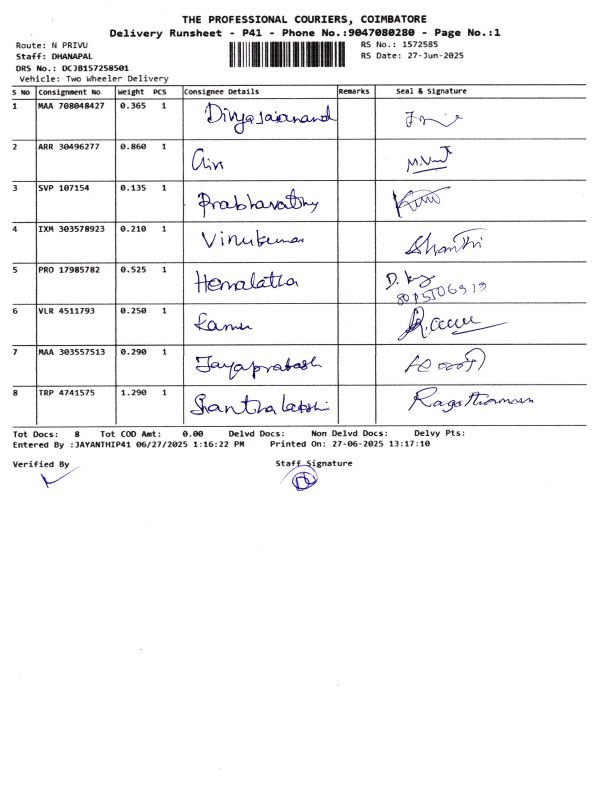 THE PROFESSIONAL COURIERS, COIMBATORE
Delivery Runsheet - P41 - Phone No.:9047080280 - Page No.:1
Route: N PRIVU RS No.: 1572585
Staff: DHANAPAL RS Date: 27-Jun-2025
DRS No.: DCJB157258501
Vehicle: Two Wheeler Delivery
S No Consignment No. Weight PCS Consignee Details Remarks Seal & Signature
1 MAA 708048427 0.365 1
2 ARR 30496277 0.860 1
3 SVP 107154 0.135 1 Prabhavathy
4 IXM 303578923 0.210 1 Vinukumar Shanthi
5 PRO 17985782 0.525 1 Hemalatha D.
6 VLR 4511793 0.250 1
7 MAA 303557513 0.290 1 Jayaprakash
8 TRP 4741575 1.290 1
Tot Docs: 8 Tot COD Amt: 0.00 Delvd Docs: Non Delvd Docs: Delvy Pts:
Entered By :JAYANTHIP41 06/27/2025 1:16:22 PM Printed On: 27-06-2025 13:17:10
Verified By Staff Signature